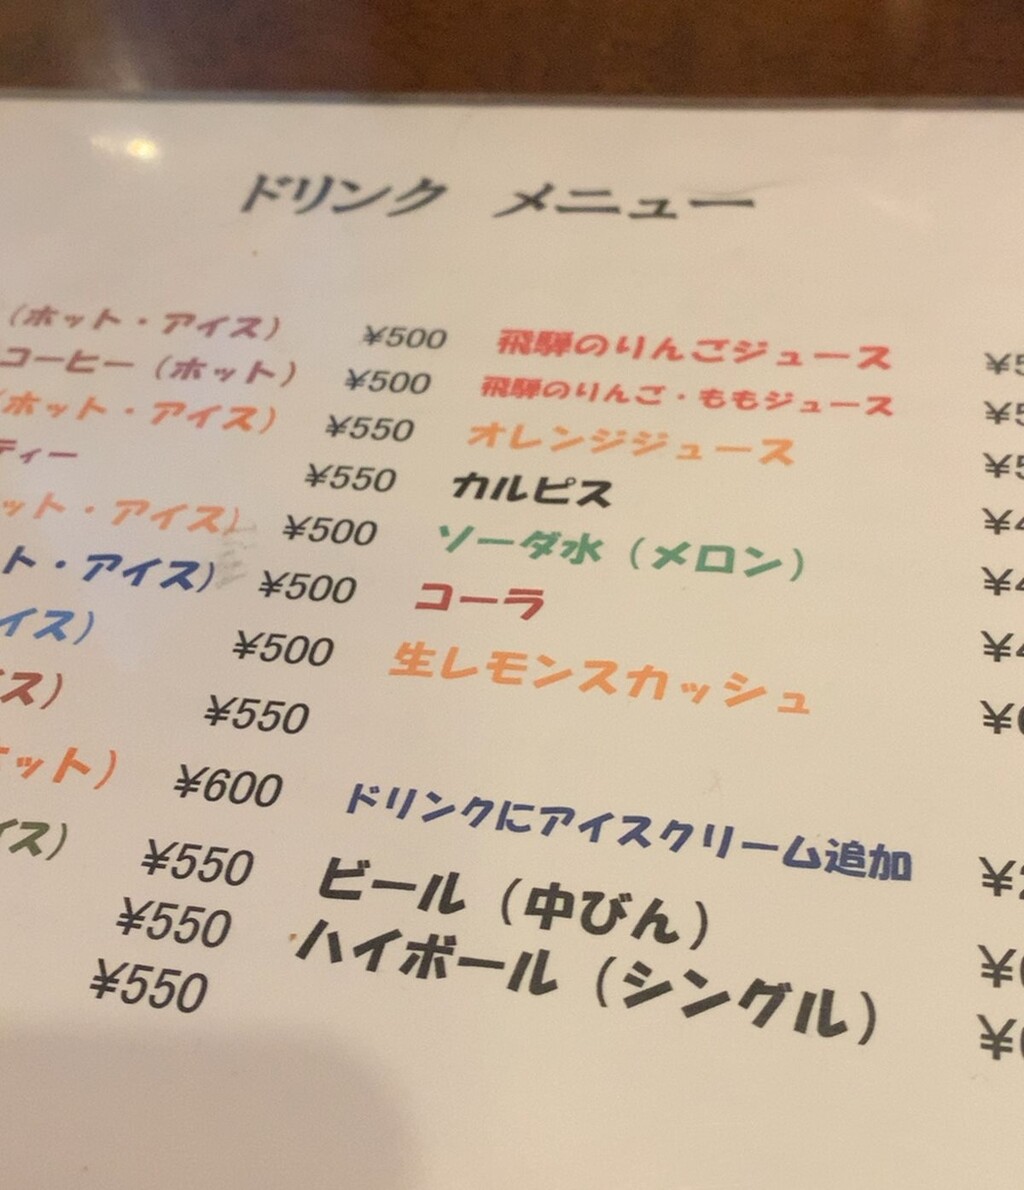 ドリンク メニュー
（ホット・アイス） ¥500 飛騨のりんごジュース ¥5
コーヒー（ホット） ¥500 飛騨のりんご・ももジュース ¥5
（ホット・アイス） ¥550 オレンジジュース ¥5
ティー ¥550 カルピス ¥4
ット・アイス） ¥500 ソーダ水（メロン） ¥4
ト・アイス） ¥500 コーラ ¥4
イス） ¥500 生レモンスカッシュ ¥6
ス） ¥550
ホット） ¥600 ドリンクにアイスクリーム追加 ¥2
イス） ¥550 ビール（中びん） ¥6
¥550 ハイボール（シングル） ¥6
¥550